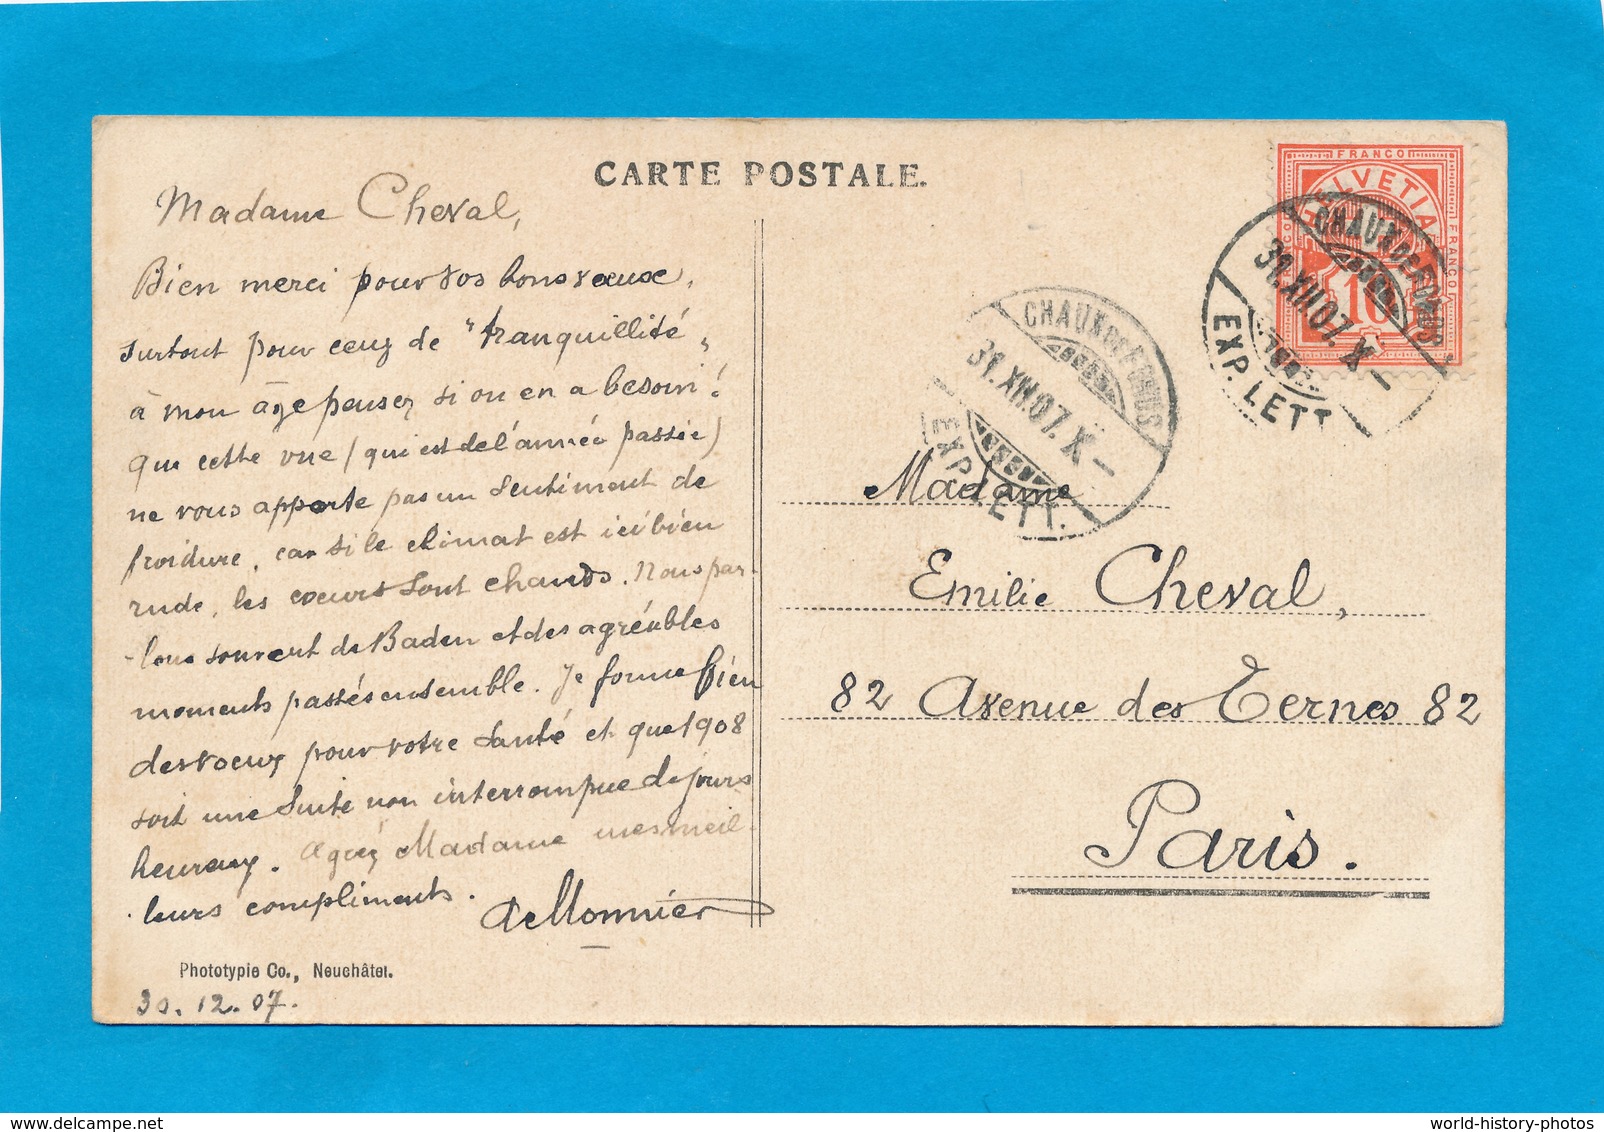 CARTE POSTALE.
Madame Cheval,
Bien merci pour vos bons vœux,
surtout pour ceux de "tranquillité"
à mon âge pensez si on en a besoin!
Que cette vue (qui est de l'année passée)
ne vous apporte pas un sentiment de
froidure, car si le climat est ici bien
rude, les cœurs sont chauds. Nous par-
-lons souvent de Baden et des agréables
moments passés ensemble. Je forme bien
des vœux pour votre santé et que 1908
soit une suite non interrompue de jours
heureux. Agréez Madame mes meil-
leurs compliments.
Phototypie Co., Neuchâtel.
30.12.07.
FRANCO
HELVETIA
FRANCO
10
CHAUX DE FONDS
31.XII.07.X-
EXP. LETT.
CHAUX DE FONDS
31.XII.07.X-
EXP. LETT.
Madame
Emilie Cheval,
82 Avenue des Ternes 82
Paris.
world-history-photos